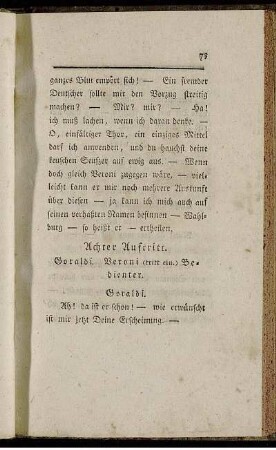 77
ganzes Blut empört sich! — Ein fremder
Deutscher sollte mir den Vorzug streitig
machen? — Mir? mir? — Ha!
ich muß lachen, wenn ich daran denke. —
O, einfältiger Thor, ein einziges Mittel
darf ich anwenden, und du hauchst deine
keuschen Seufzer auf ewig aus. — Wenn
doch gleich Veroni zugegen wäre, — viel-
leicht kann er mir noch mehrere Auskunft
über diesen — ja kann ich mich auch auf
seinen verhaßten Namen besinnen — Wahl-
burg — so heißt er — ertheilen.
Achter Auftritt.
Goraldi. Veroni (tritt ein.) Be-
dienter.
Goraldi.
Ah! da ist er schon! — wie erwünscht
ist mir jetzt Deine Erscheinung. —